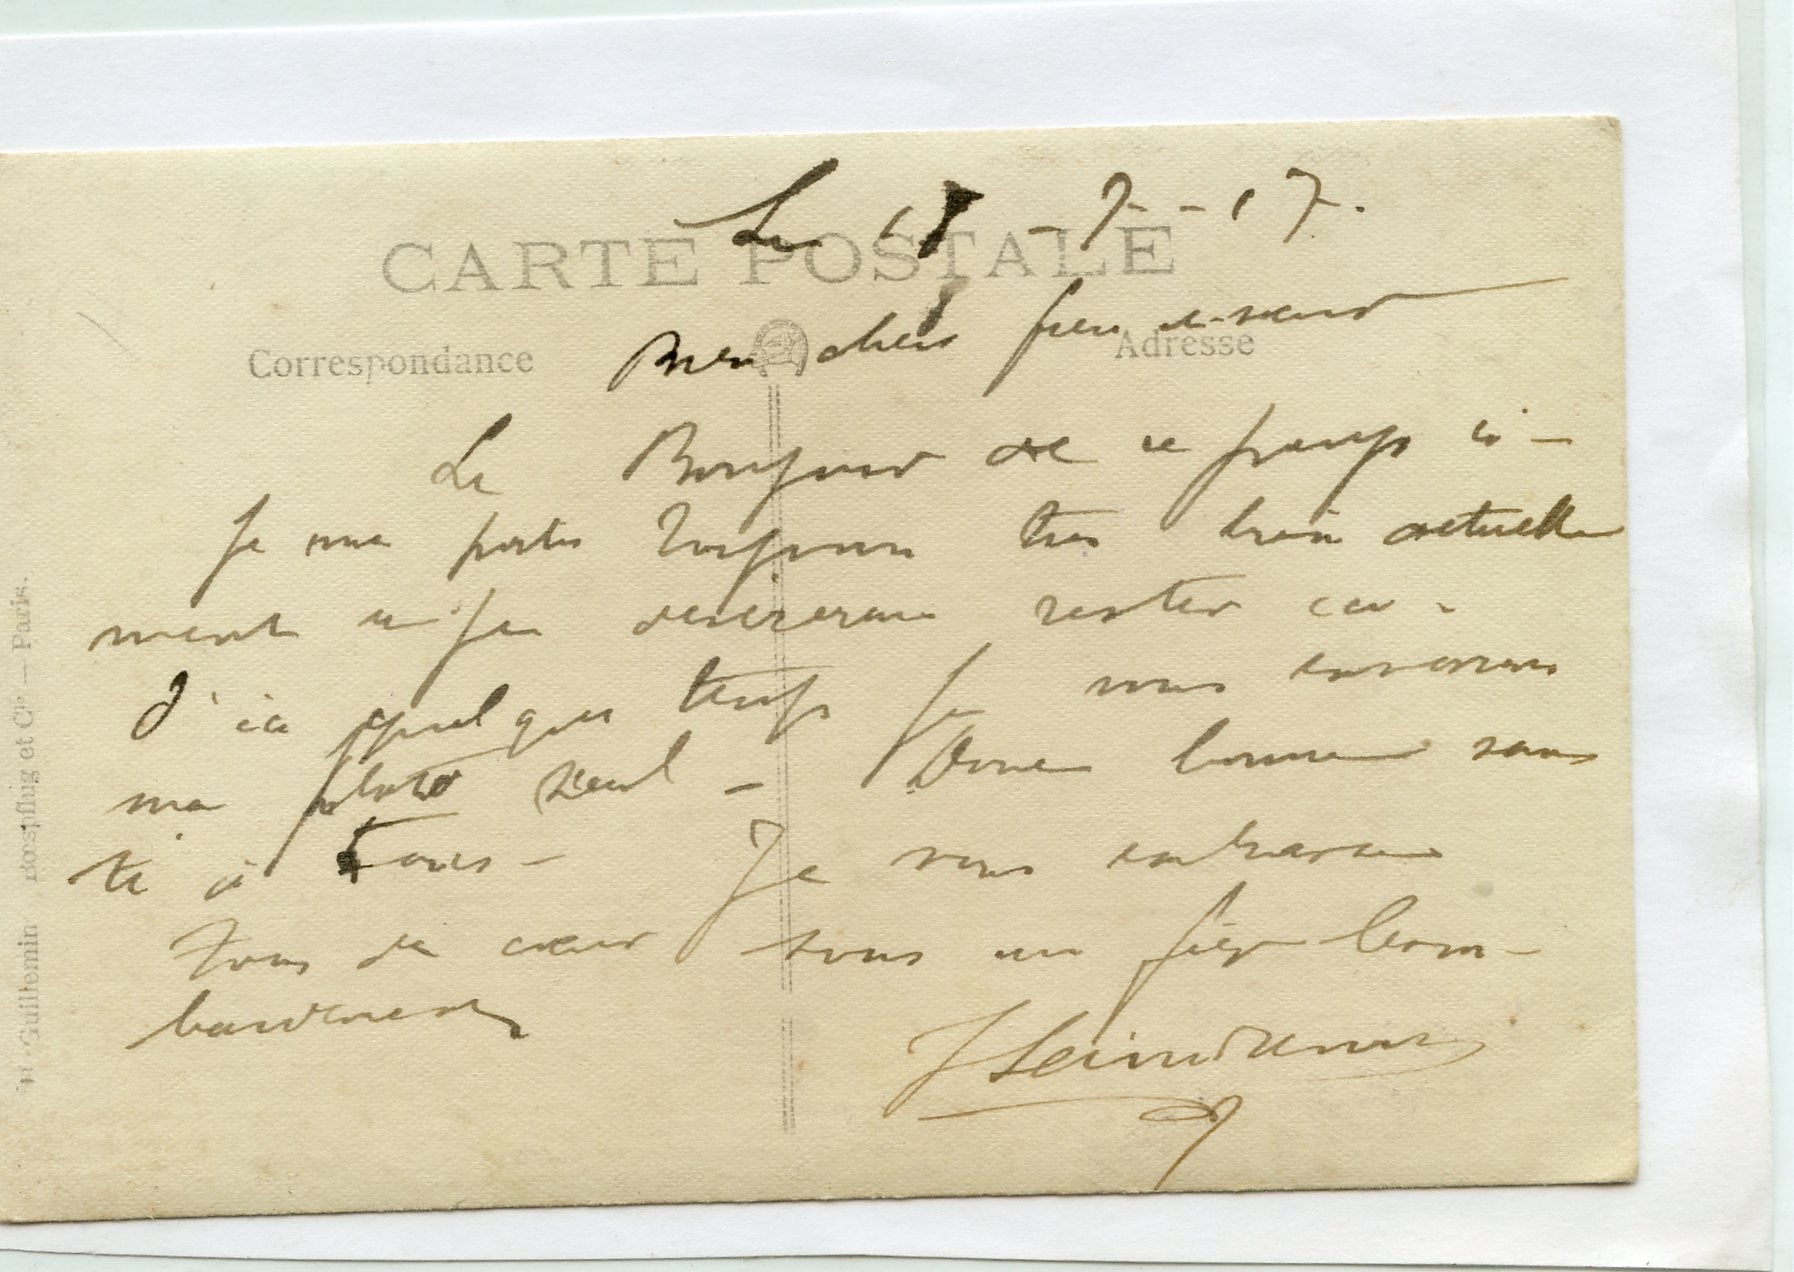 Le 18 - 7 - - 17.
CARTE POSTALE
Correspondance
Adresse
Bien chers frère et sœur
Le Bonjour de ce
Je me porte toujours très bien actuelle
ment et je desirerais rester
D'ici quelques temps je vous enverrais
ma photo seul - Donc bonne san
té à tous - Je vous embrasse
tous de cœur sous un fier bom-
bardement
Guillemin Boespflug et Cie — Paris.